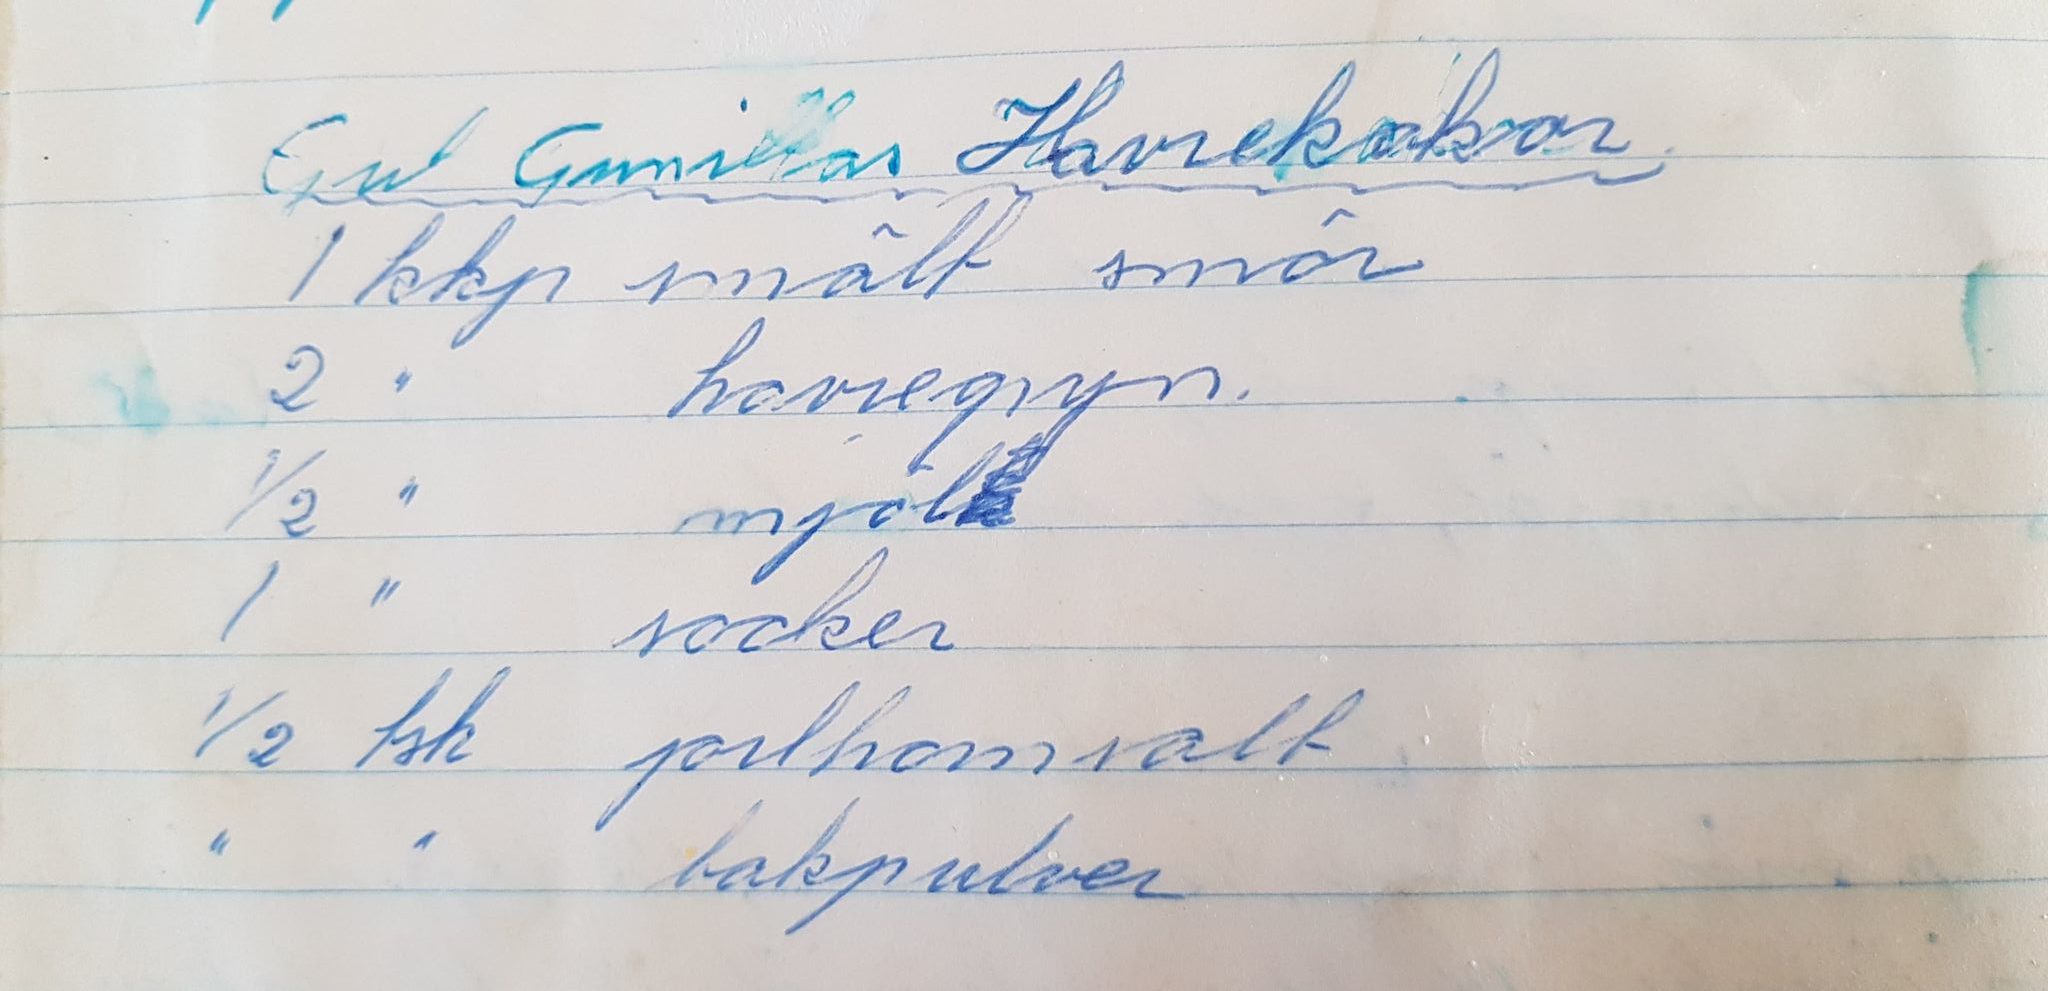 Gul Gunillas Havrekakor.
1 kkp smält smör
2 " havregryn.
1/2 " mjöl
1 " socker
1/2 tsk jorthornsalt
" " bakpulver